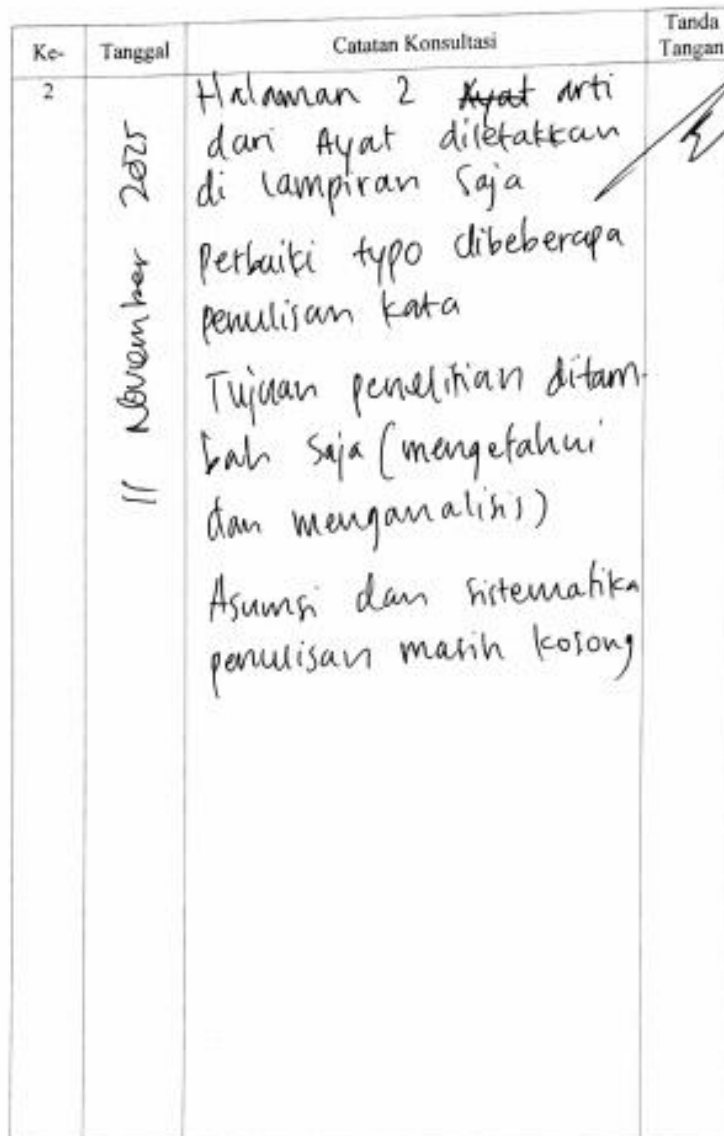 Ke-
Tanggal
Catatan Konsultasi
Tanda
Tangan
2
11 November 2025
Halaman 2 Ayat arti
dari Ayat diletakkan
di lampiran saja
Perbaiki typo dibeberapa
penulisan kata
Tujuan penelitian ditam-
bah saja (mengetahui
dan menganalisis)
Asumsi dan sistematika
penulisan masih kosong